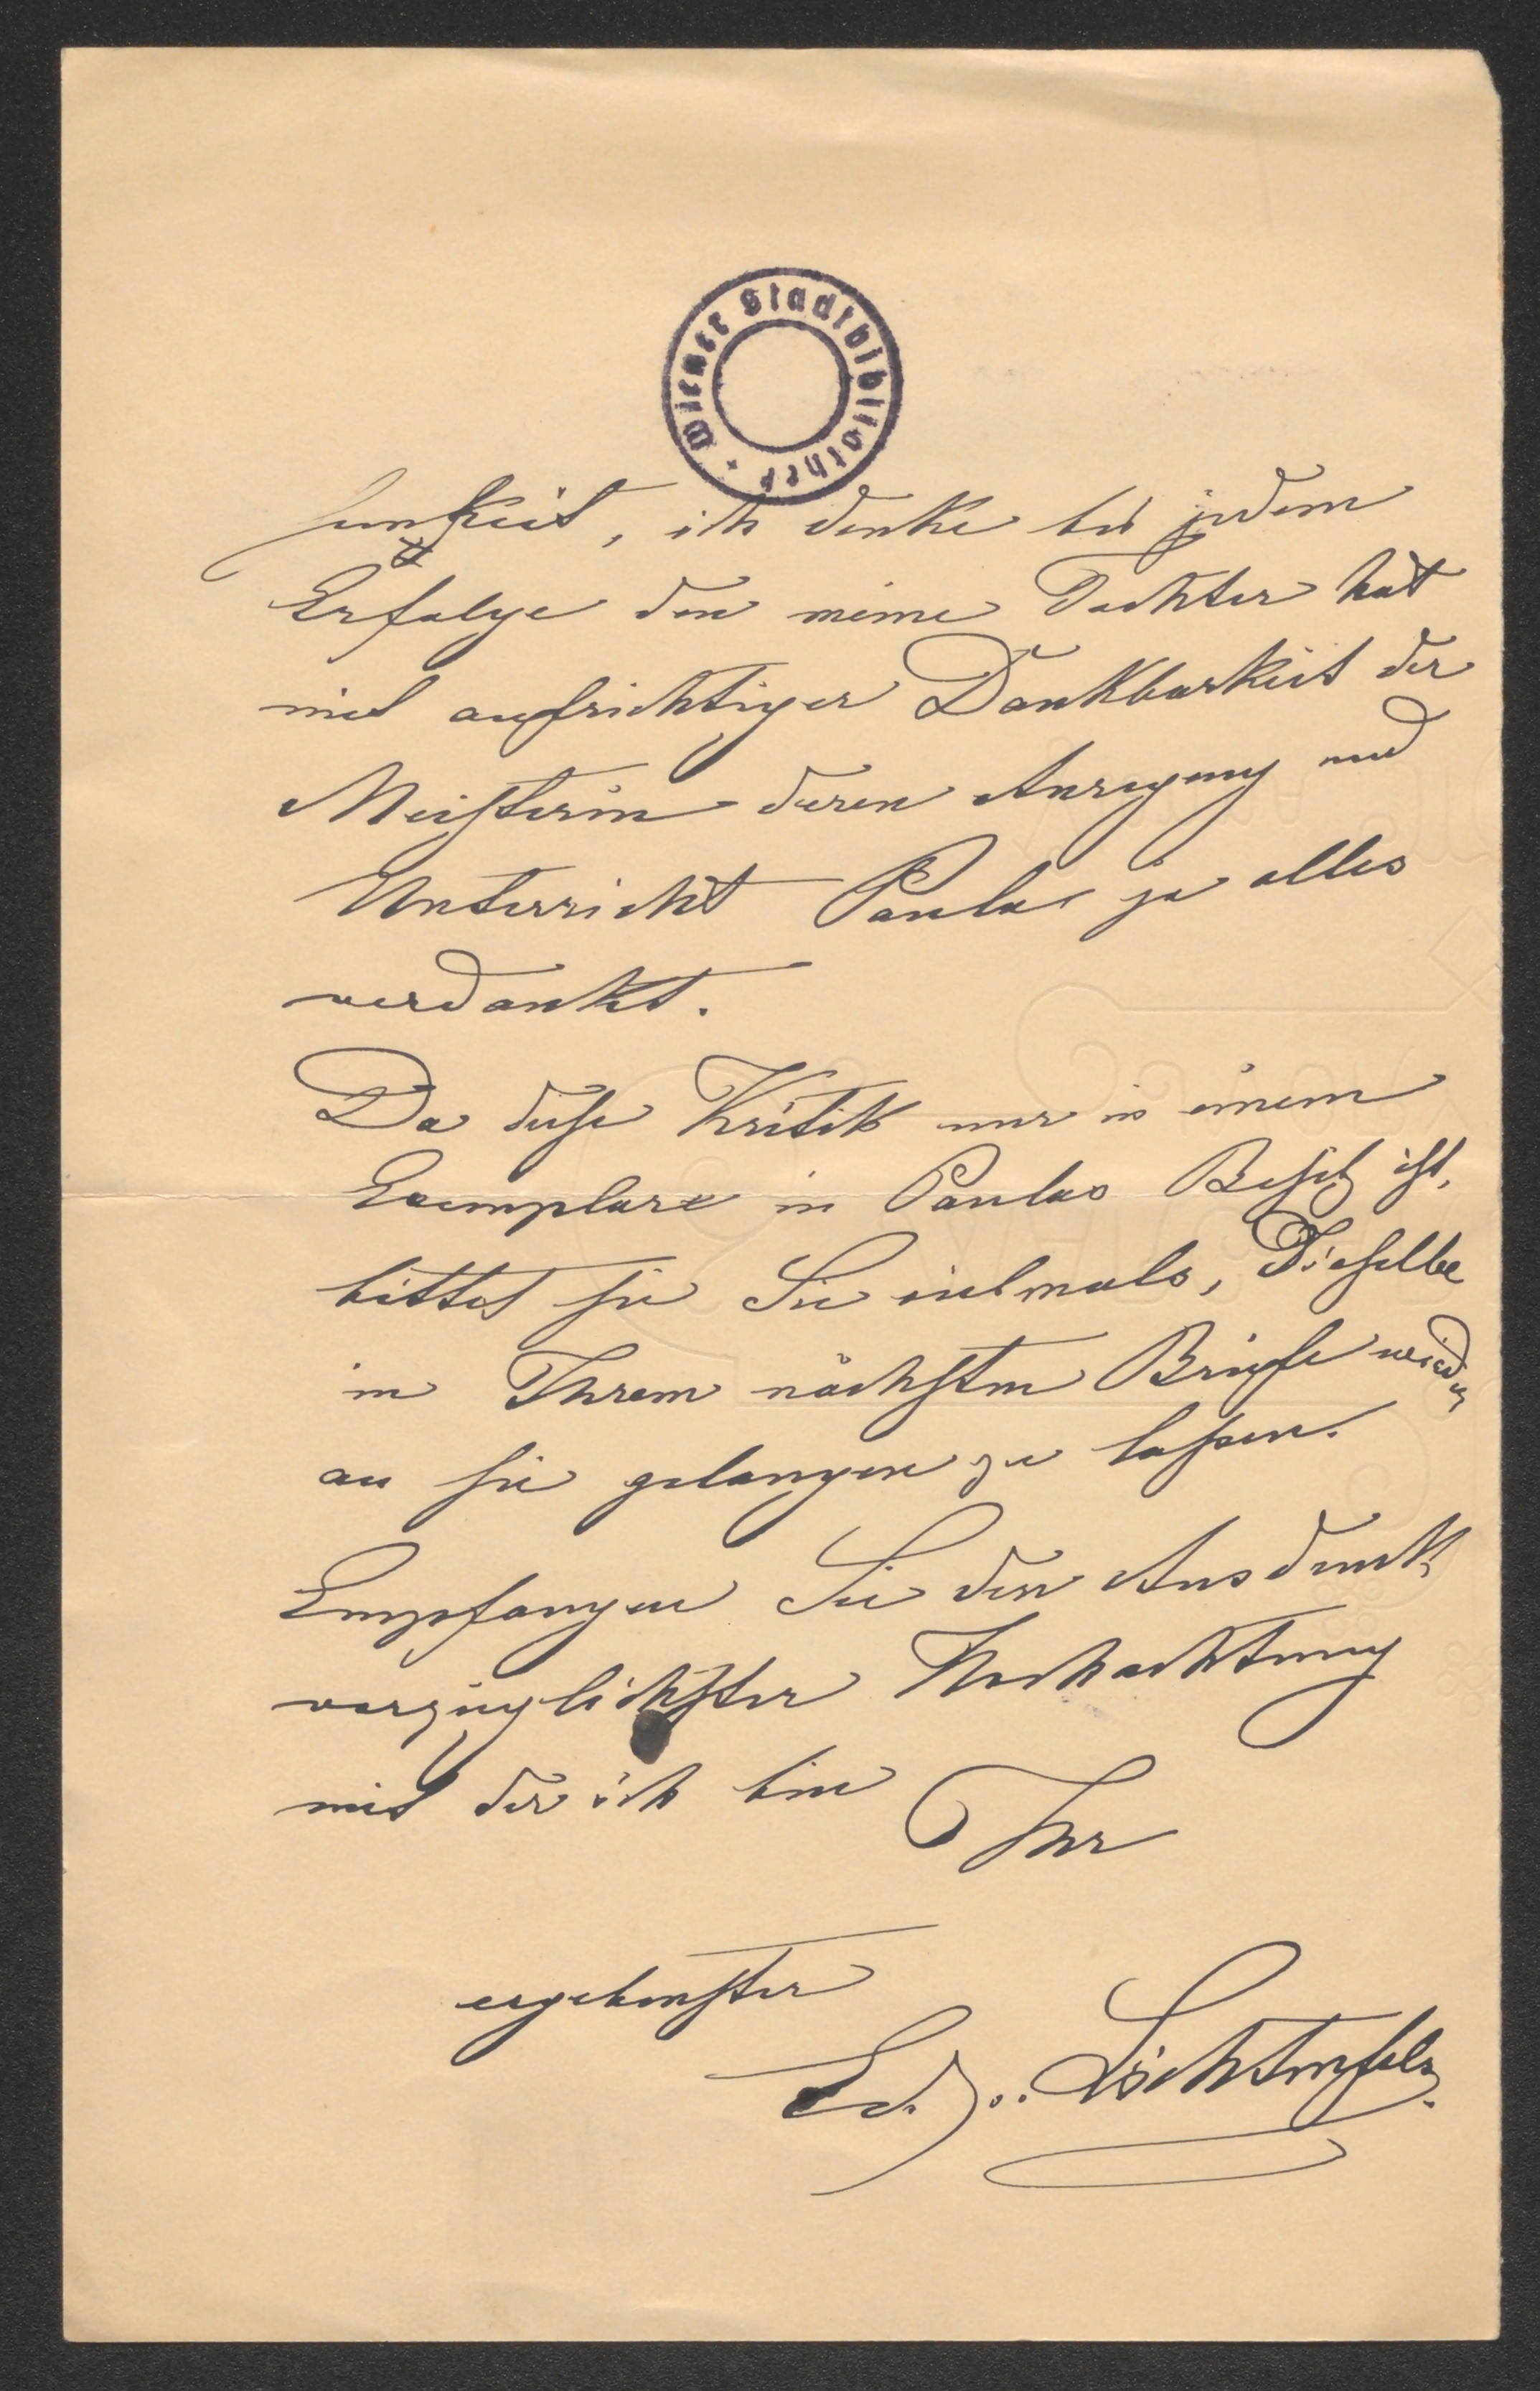 Wiener Stadtbibliothek
samkeit, ich denke bei jedem
Erfolge den meine Tochter hat
mit aufrichtiger Dankbarkeit der
Meisterin deren Anregung und
Unterricht Paula ja alles
verdankt.
Da diese Kritik nur in einem
Exemplare in Paulas Besitz ist,
bittet sie Sie vielmals, Dieselbe
in Ihrem nächsten Briefe wieder
an sie gelangen zu lassen.
Empfangen Sie den Ausdruck
vorzüglichster Hochachtung
mit der ich bin Ihr
ergebenster
Ed. v. Lichtenfels